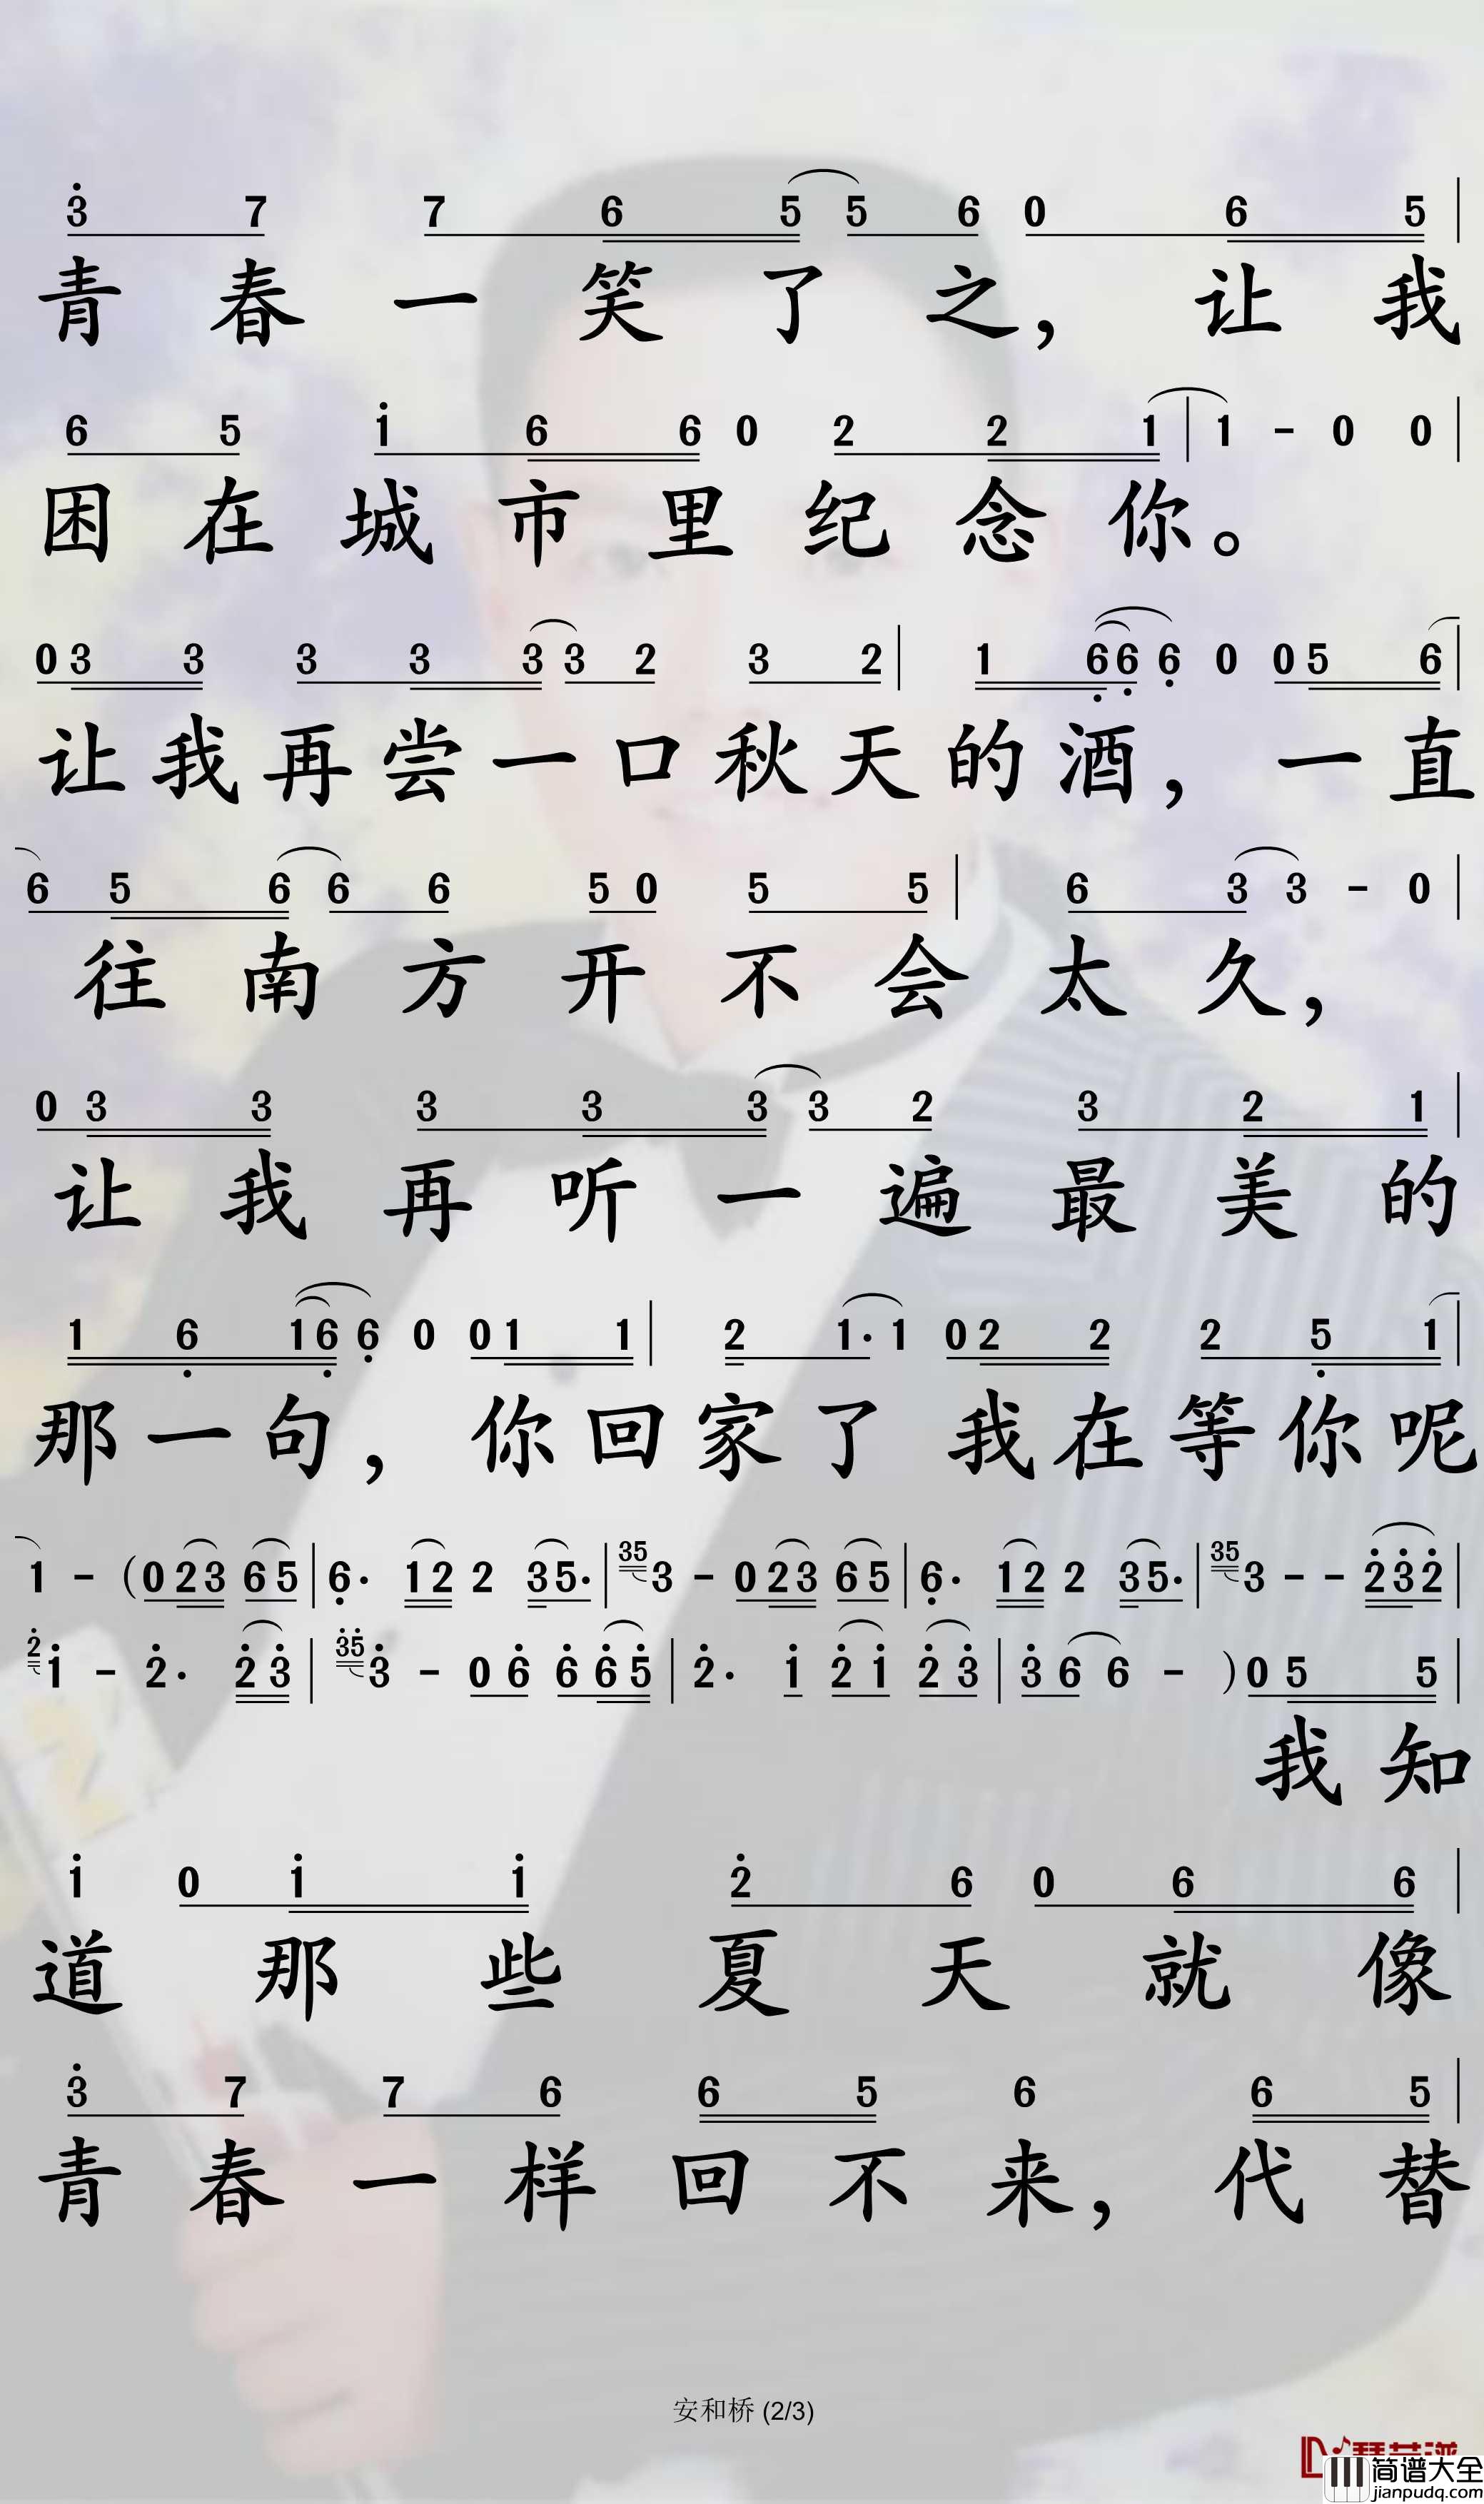 3 7 7 6 5 5 6 0 6 5
青春一笑了之，让我
6 5 1 6 6 0 2 2 1 1 - 0 0
困在城市里纪念你。
0 3 3 3 3 3 3 2 3 2 1 6 6 6 0 0 5 6
让我再尝一口秋天的酒，一直
6 5 6 6 6 5 0 5 5 6 3 3 - 0
往南方开不会太久，
0 3 3 3 3 3 3 2 3 2 1
让我再听一遍最美的
1 6 1 6 6 0 0 1 1 2 1· 1 0 2 2 2 5 1
那一句，你回家了 我在等你呢
1 - (0 2 3 6 5 | 6· 1 2 2 3 5· | 35 3 - 0 2 3 6 5 | 6· 1 2 2 3 5· | 35 3 - - 2 3 2 |
2 1 - 2· 2 3 | 35 3 - 0 6 6 6 5 | 2· 1 2 1 2 3 | 3 6 6 - ) 0 5 5 |
我知
1 0 1 1 2 6 0 6 6
道那些夏天就像
3 7 7 6 6 5 6 6 5
青春一样回不来，代替
安和桥 (2/3)
简谱大全
jianpudq.com